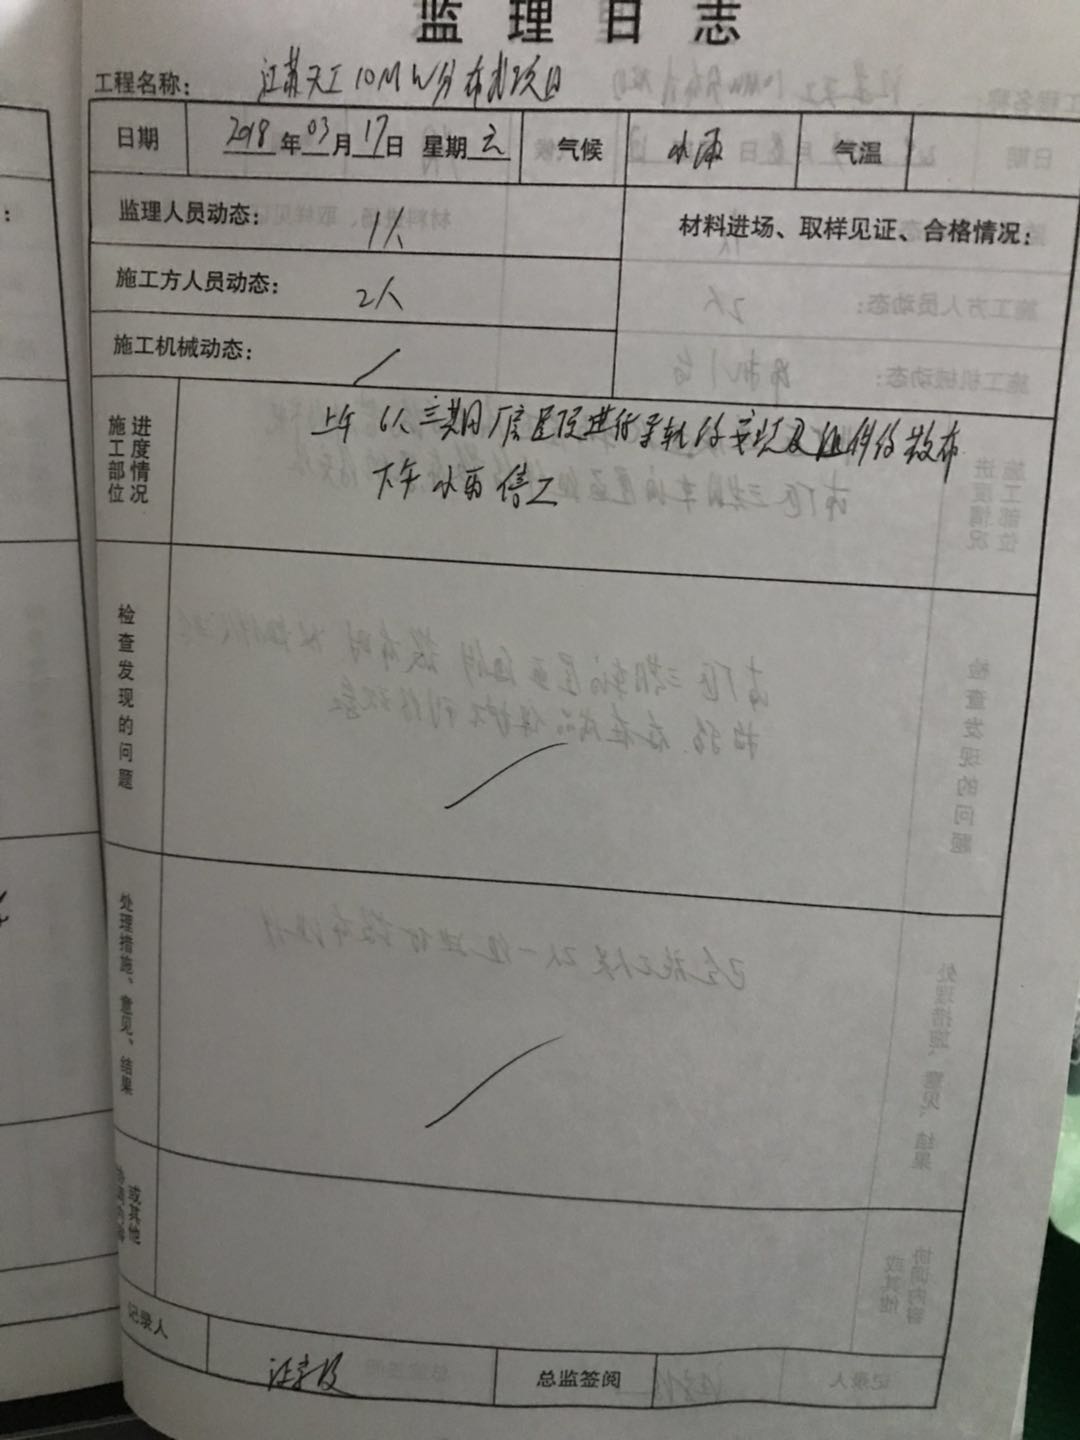 监理日志
工程名称: 江苏天工10MW分布式项目
日期 2018年03月17日 星期六 气候 小雨 气温
监理人员动态: 1人
材料进场、取样见证、合格情况:
施工方人员动态: 2人
施工机械动态: /
施工部位进度情况
上午 三期厂房屋顶进行导轨的安装及组件的散布
下午 小雨 停工
检查发现的问题
处理措施、意见、结果
或其他
记录人
总监签阅